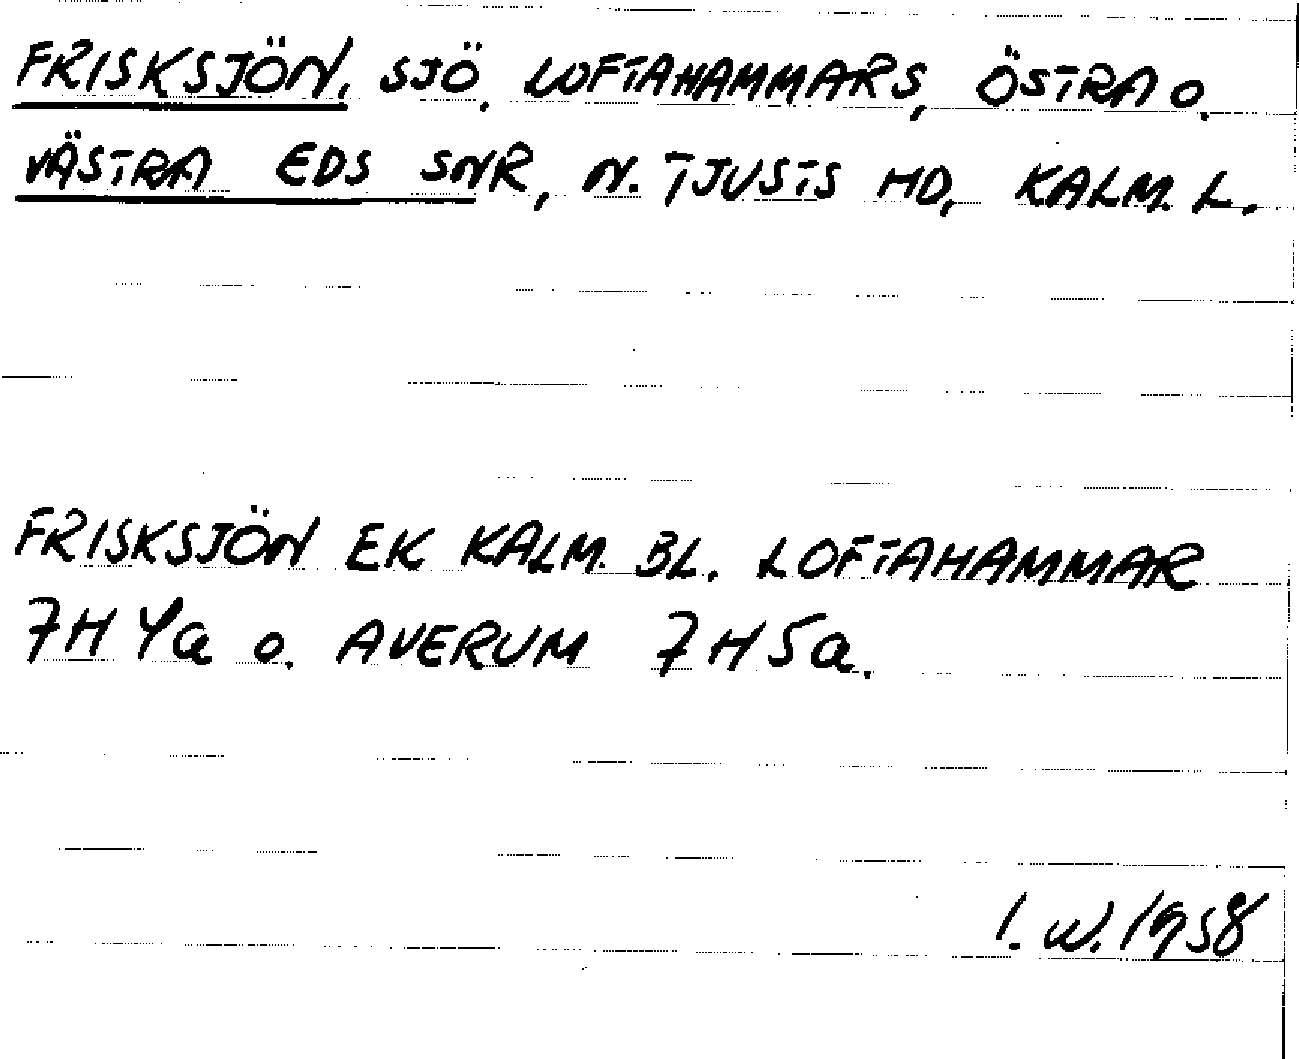 FRISKSJÖN. SJÖ. LOFTAHAMMARS, ÖSTRA O.
VÄSTRA EDS SNR, N. TJUSTS HD, KALM. L.
FRISKSJÖN EK KALM. BL. LOFTAHAMMAR
7H4a o. AVERUM 7H5a.
I. W. 1958